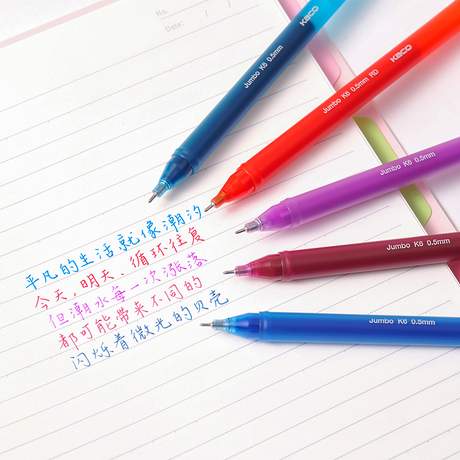 No.
Date / /
KACO
Jumbo K6 0.5mm
KACO
Jumbo K6 0.5mm RD
Jumbo K6 0.5mm
Jumbo K6 0.5mm
Jumbo K6 0.5mm
平凡的生活就像潮汐
今天,明天、循环往复
但潮水每一次涨落
都可能带来不同的
闪烁着微光的贝壳